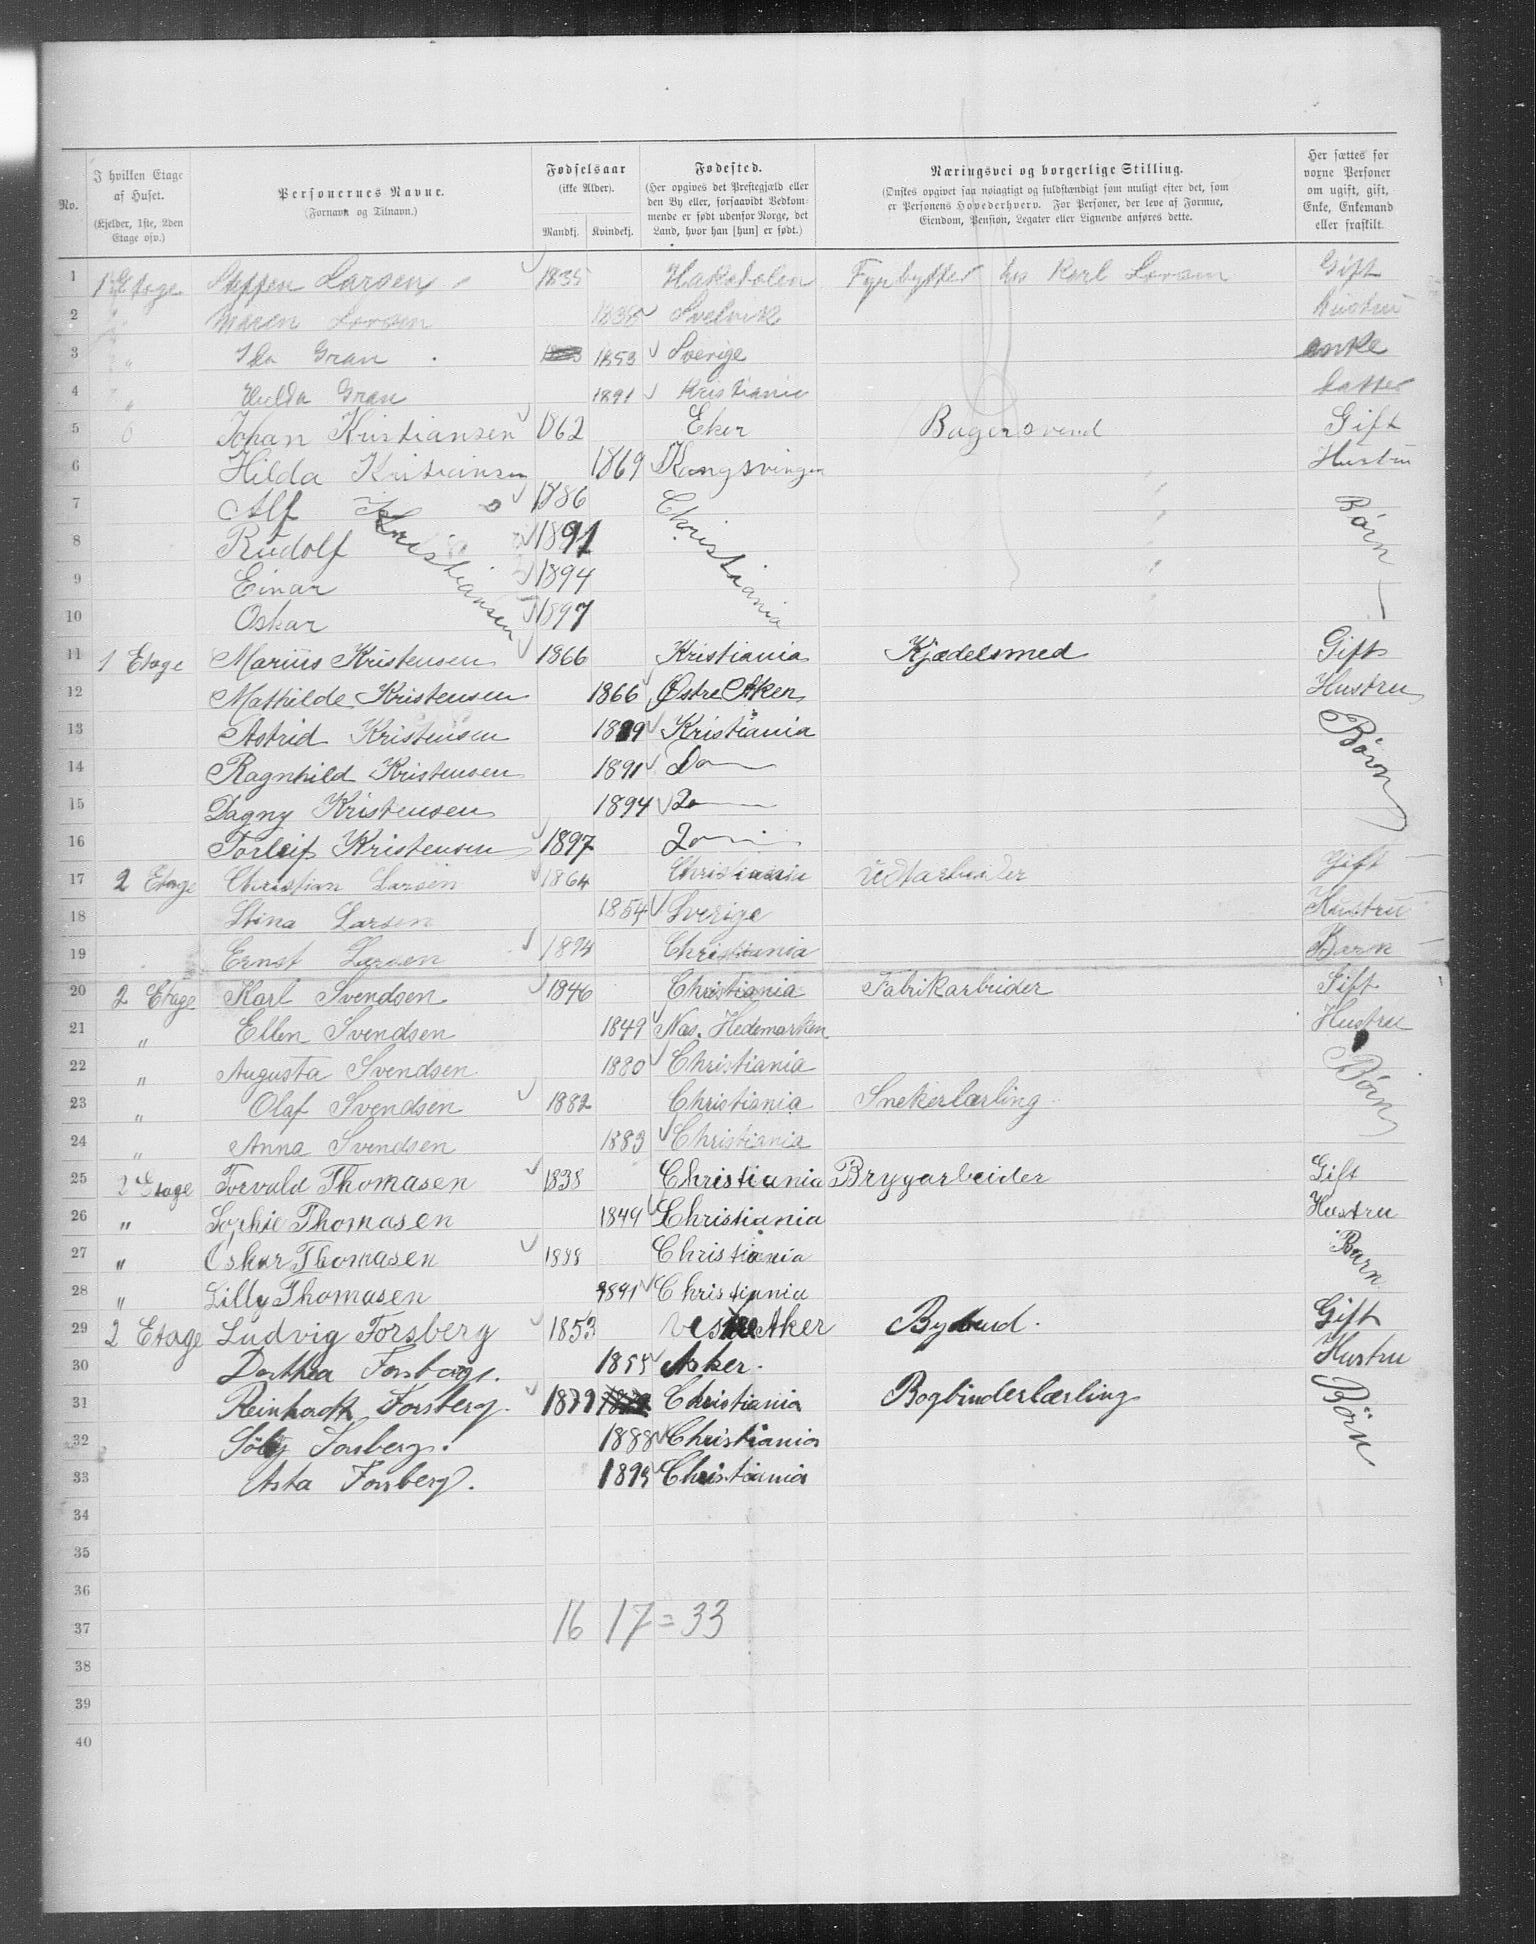 No.
I hvilken Etage af Huset. (Kjelder, 1ste, 2den Etage osv.)
Personernes Navne. (Fornavn og Tilnavn.)
Fødselsaar (ikke Alder). Mandkj. Kvindekj.
Fødested. (Her opgives det Prestegjæld eller den By eller, forsaavidt Vedkommende er født udenfor Norge, det Land, hvor han [hun] er født.)
Næringsvei og borgerlige Stilling. (Ønskes opgivet saa nøiagtigt og fuldstændigt som muligt efter det, som er Personens Hovederhverv. For Personer, der leve af Formue, Eiendom, Pension, Legater eller Lignende anføres dette.
Her sættes for voxne Personer om ugift, gift, Enke, Enkemand eller fraskilt.
1 1 Etage Larsen 1835 Hakedalen Fyrbytter hos Karl Larsen Gift
2 Maren Larsen 1838 Svelvik Hustru
3 " Ida Gran 1853 Sverige enke
4 " Hulda Gran 1891 Kristiania datter
5 Johan Kristiansen 1862 Eker Bagersvend Gift
6 Hilda Kristiansen 1869 Kongsvinger Hustru
7 Alf Kristiansen 1886 Christiania Børn
8 Rudolf 1891
9 Einar 1894
10 Oskar 1897
11 1 Etage Marius Kristensen 1866 Kristiania Kjædelsmed Gift
12 Mathilde Kristensen 1866 Østre Aken Hustru
13 Astrid Kristensen 1889 Kristiania Børn
14 Ragnhild Kristensen 1891 Do
15 Dagny Kristensen 1894 Do
16 Torleif Kristensen 1897 Do
17 2 Etage Christian Larsen 1864 Christiania Gift
18 Stina Larsen 1854 Sverige Hustru
19 Ernst Larsen 1894 Christiania Barn
20 2 Etage Karl Svendsen 1846 Christiania Fabrikarbeider Gift
21 " Ellen Svendsen 1849 Nas. Hedemarken Hustru
22 " Augusta Svendsen 1880 Christiania Børn
23 " Olaf Svendsen 1882 Christiania Snekerlærling
24 " Anna Svendsen 1883 Christiania
25 2 Etage Torvald Thomasen 1838 Christiania Brygarbeider Gift
26 " Sophie Thomasen 1849 Christiania Hustru
27 " Oskar Thomasen 1888 Christiania Barn
28 " Lilly Thomasen 1891 Christiania
29 2 Etage Ludvig Forsberg 1853 Vestre Aker Bybud. Gift
30 Dorthea Forsberg. 1855 Asker. Hustru
31 Reinhardt Forsberg. 1879 Christiania Bogbinderlærling Børn
32 Forsberg. 1888 Christiania
33 Asta Forsberg. 1895 Christiania
34
35
36
37 16 17 = 33
38
39
40